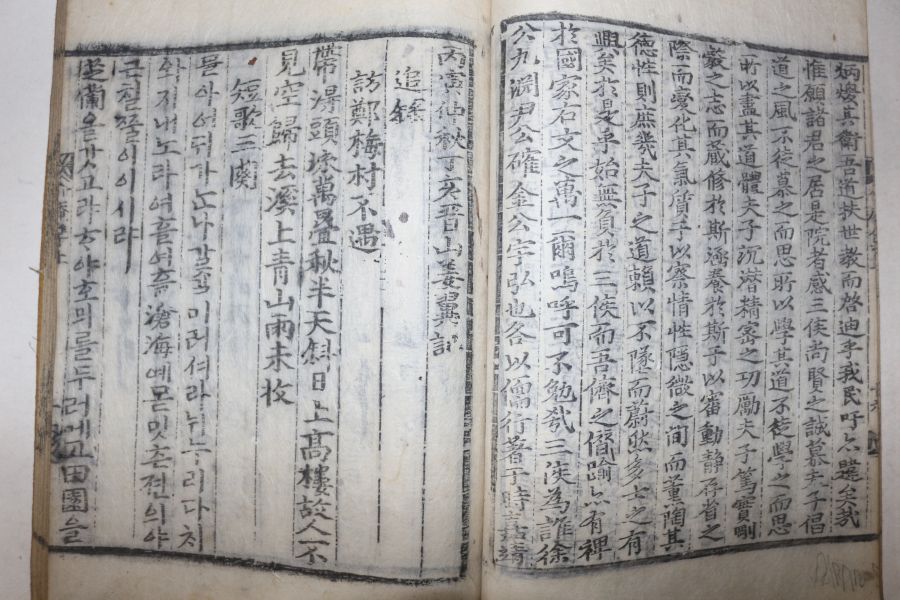 炳煥其衛吾道扶世敎而啓迪乎我民吁亦韙矣哉
惟願諸君之居是院者感三侯尚賢之誠慕夫子倡
道之風不徒慕之而思所以學其道不徒學之而思
所以盡其道體夫子沉潛精密之功勵夫子篤實剛
毅之志而藏修於斯涵養於斯子以審動靜存省之
際而變化其氣質子以察情性隱微之間而薰陶其
德性則庶幾夫子之道賴以不墜而蔚然多士之有
興矣於是乎始無負於三侯而吾儕之僭踰亦有裨
於國家右文之萬一爾嗚呼可不勉哉三侯為誰徐
公九淵尹公確金公字弘也各以儒行著于時嘉靖
丙寅仲秋丁亥晋山姜翼記
追錄
訪鄭梅村不遇
帶濕頭流萬疊秋半天斜日上高樓故人不
見空歸去溪上青山雨未收
短歌三闋
믈아어듸가노냐갈길미러셔라뉘누리다치
와지내노라여흘여흘滄海예몯밋촌젼의야
근칠쭐이이시랴
柴備을가고라宀야호믜를두러메고田園을